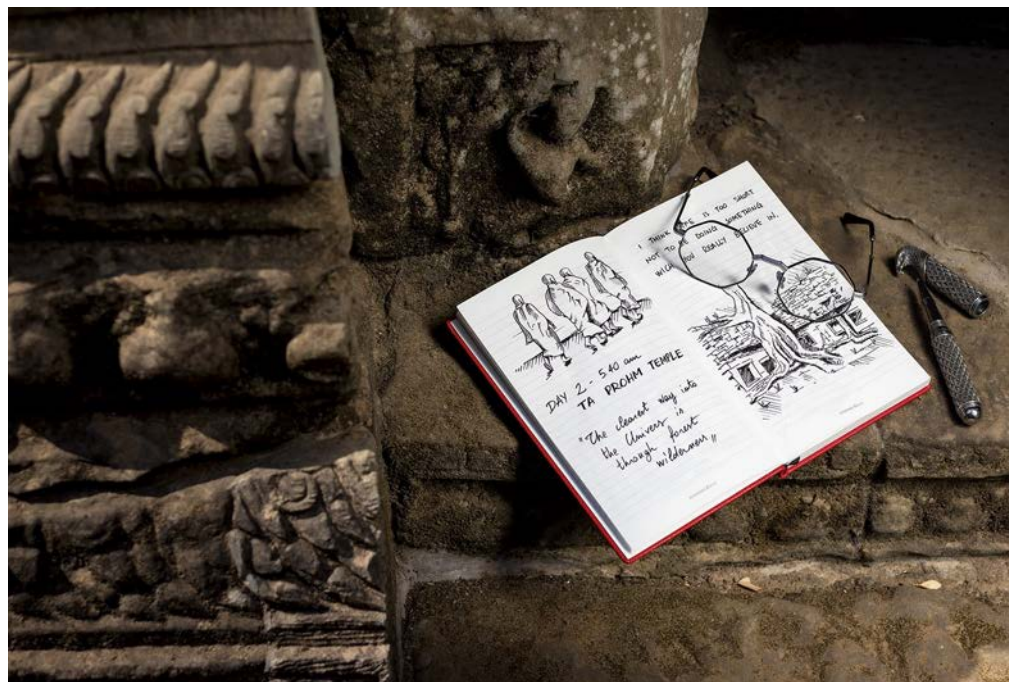 DAY 2.- 5.40 am
TA PROHM TEMPLE
"The clearest way into
the Univers is
through forest
wilderness"
I THINK LIFE IS TOO SHORT
NOT TO BE DOING SOMETHING
WICH YOU REALLY BELIEVE IN.